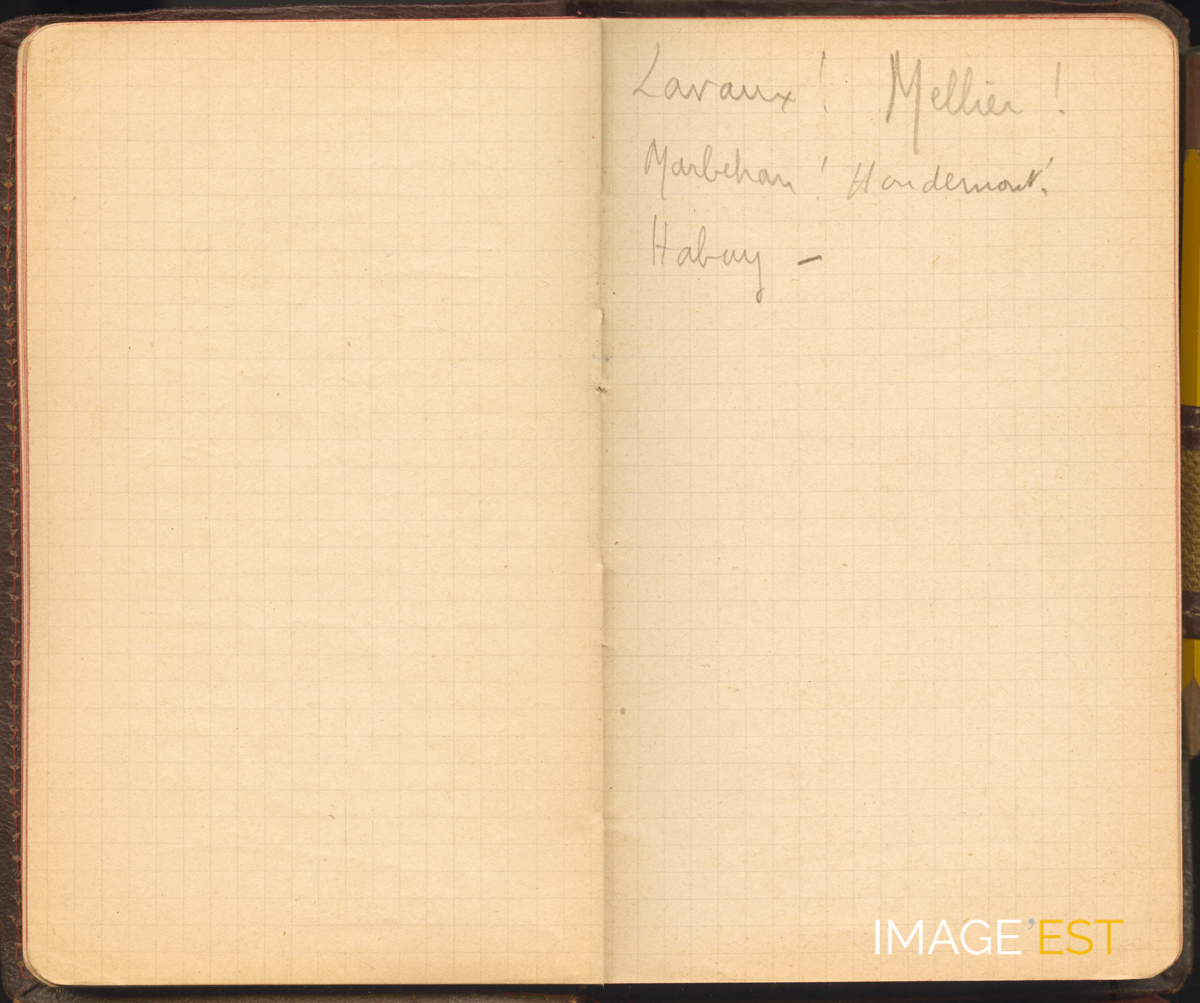 Lavaux ! Mellier !
Marbehan ! Houdemont !
Habay –
IMAGE'EST